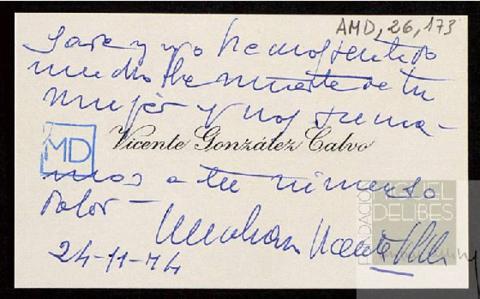 AMD, 26, 173
y yo hemos sentido
mucho la muerte de tu
mujer y nos suma-
MD
Vicente González Calvo
mos a tu inmenso
dolor -
Un abrazo Vicente
24-11-74
FUNDACIÓN
MIGUEL
DELIBES